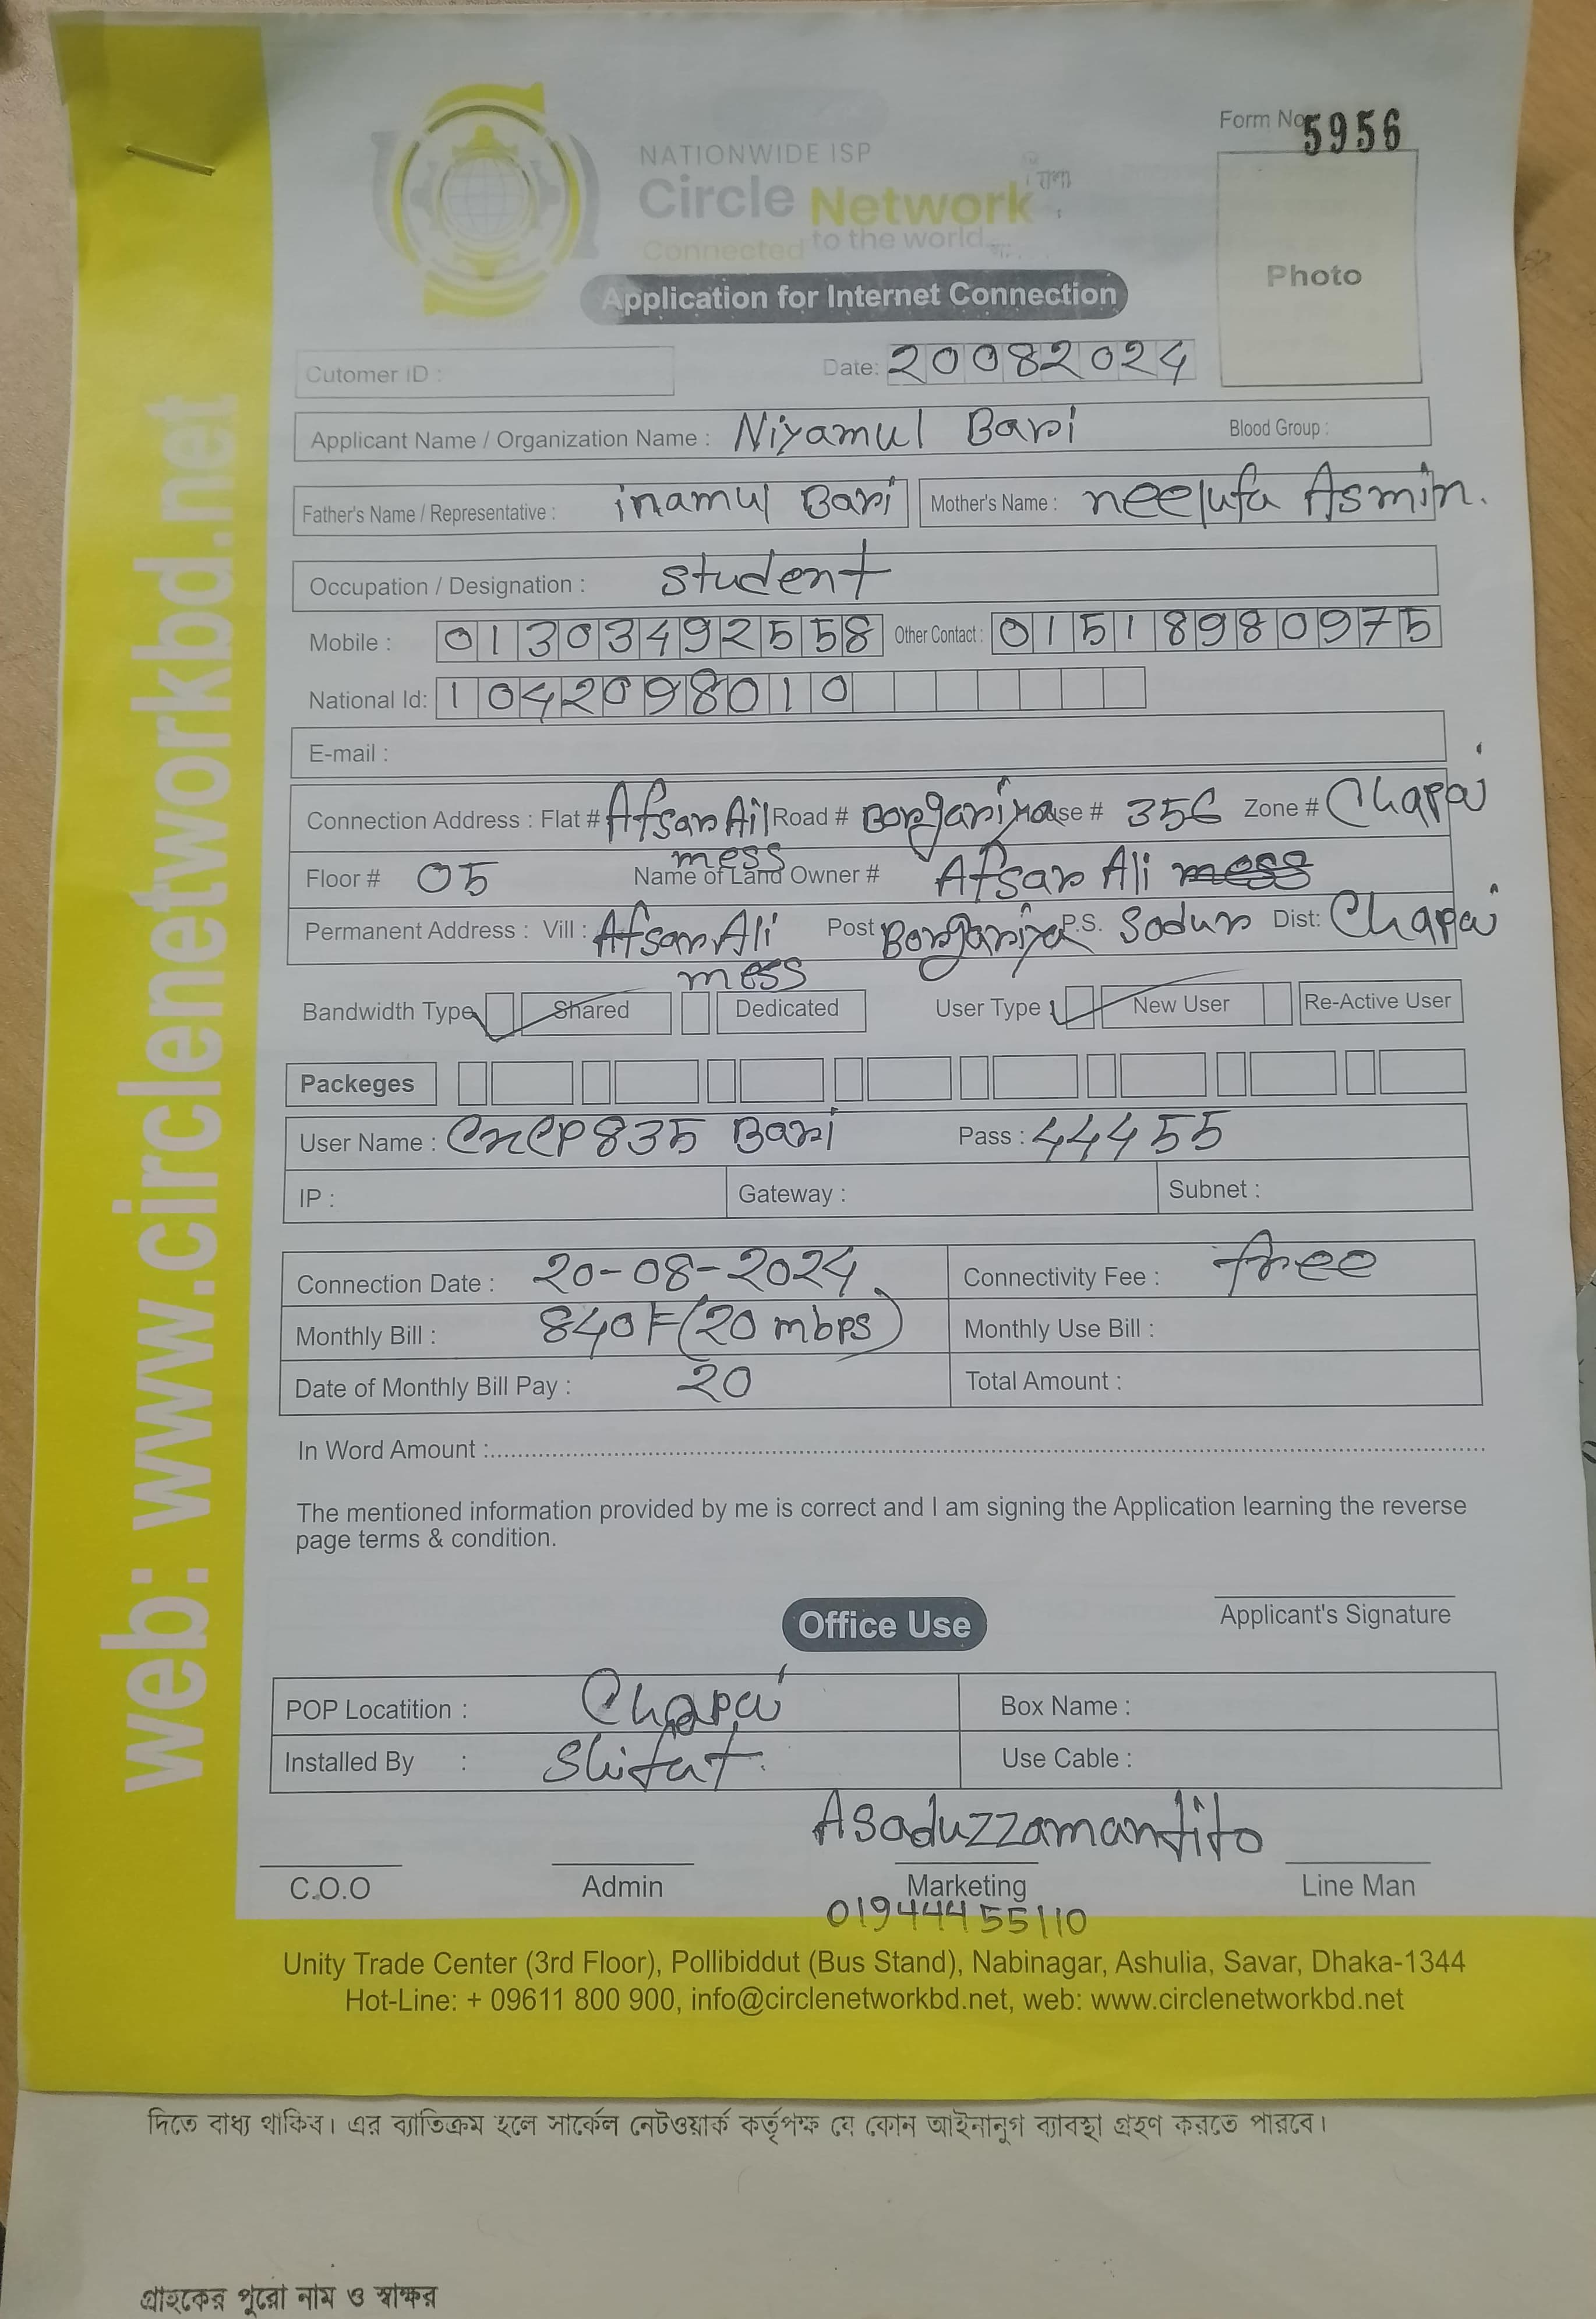 Form No 5956
NATIONWIDE ISP
Circle Network
Connected to the world
Photo
Application for Internet Connection
Cutomer ID : Date: 20082024
Applicant Name / Organization Name : Niyamul Bari Blood Group :
Father's Name / Representative : inamul Bari Mother's Name : neelufa Asmin.
Occupation / Designation : student
Mobile : 01303492558 Other Contact : 01518980975
National Id: 1042098010
E-mail :
Connection Address : Flat # Afsar Ail Road # House # 356 Zone # Chapai
mess
Floor # 05 Name of Land Owner # Afsar Ali mess
Permanent Address : Vill : Afsar Ali Post P.S. Sodur Dist: Chapai
mess
Bandwidth Type Shared Dedicated User Type New User Re-Active User
Packeges
User Name : CNCP835 Bari Pass : 44455
IP : Gateway : Subnet :
Connection Date : 20-08-2024 Connectivity Fee : free
Monthly Bill : 840 (20 mbps) Monthly Use Bill :
Date of Monthly Bill Pay : 20 Total Amount :
In Word Amount :
The mentioned information provided by me is correct and I am signing the Application learning the reverse
page terms & condition.
Applicant's Signature
Office Use
POP Locatition : Chapai Box Name :
Installed By : Shifat. Use Cable :
Asaduzzamantito
C.O.O Admin Marketing Line Man
01944455110
Unity Trade Center (3rd Floor), Pollibiddut (Bus Stand), Nabinagar, Ashulia, Savar, Dhaka-1344
Hot-Line: + 09611 800 900, info@circlenetworkbd.net, web: www.circlenetworkbd.net
web: www.circlenetworkbd.net
দিতে বাধ্য থাকিব। এর ব্যাতিক্রম হলে সার্কেল নেটওয়ার্ক কর্তৃপক্ষ যে কোন আইনানুগ ব্যাবস্থা গ্রহণ করতে পারবে।
গ্রাহকের পুরো নাম ও স্বাক্ষর